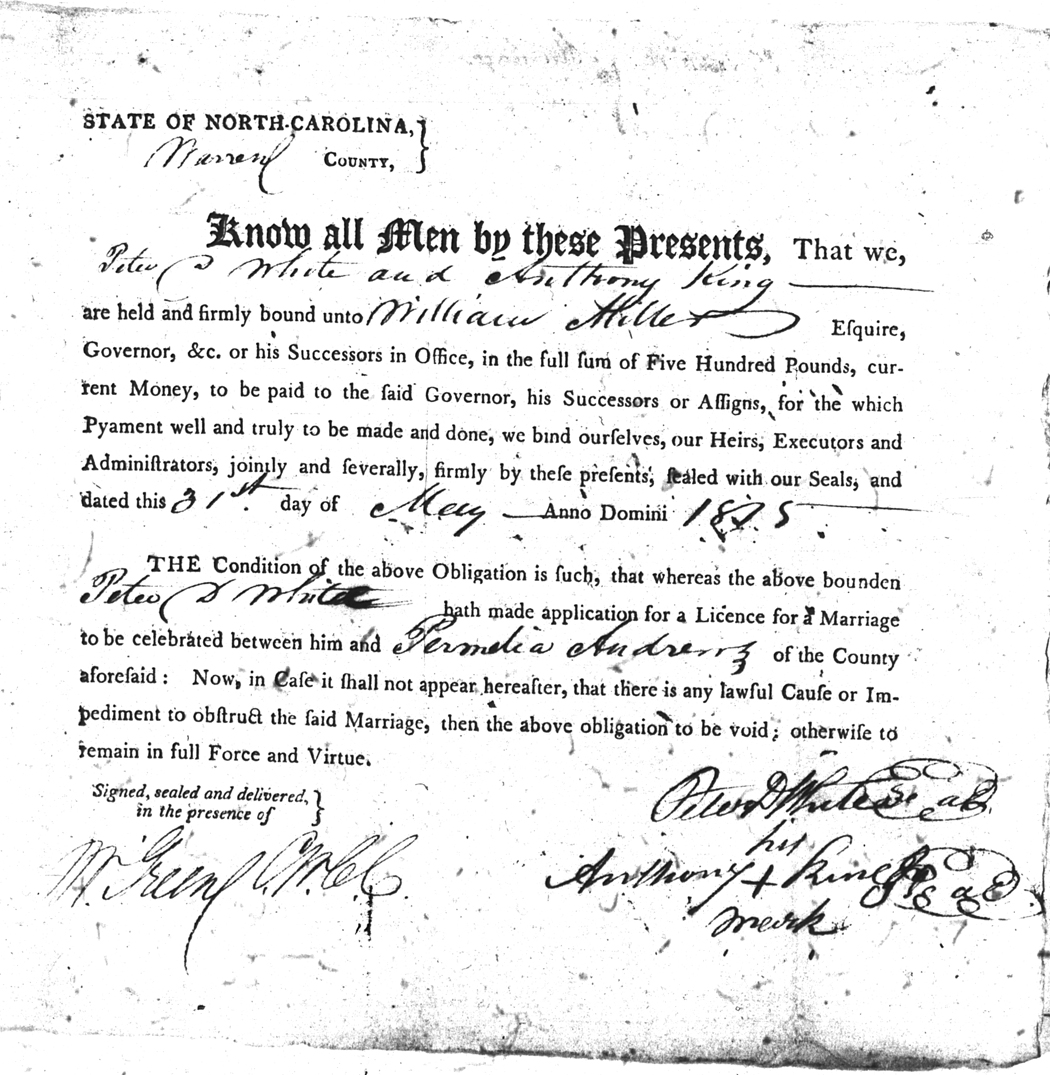 STATE OF NORTH-CAROLINA, }
Warren COUNTY, }
Know all Men by these Presents, That we,
Peter D White and Anthony King
are held and firmly bound unto William Miller Eſquire,
Governor, &c. or his Successors in Office, in the full ſum of Five Hundred Pounds, cur-
rent Money, to be paid to the ſaid Governor, his Successors or Aſſigns, for the which
Pyament well and truly to be made and done, we bind ourſelves, our Heirs, Executors and
Adminiſtrators, jointly and ſeverally, firmly by theſe preſents, ſealed with our Seals, and
dated this 31st. day of May Anno Domini 1825
THE Condition of the above Obligation is ſuch, that whereas the above bounden
Peter D White hath made application for a Licence for a Marriage
to be celebrated between him and Permelia Andrews of the County
aforeſaid: Now, in Caſe it ſhall not appear hereafter, that there is any lawful Cauſe or Im-
pediment to obſtruct the ſaid Marriage, then the above obligation to be void; otherwiſe to
remain in full Force and Virtue.
Signed, sealed and delivered, }
in the presence of }
Peter D White Seal
his
Anthony + King Seal
mark
Wm. Green C.W.C.C.